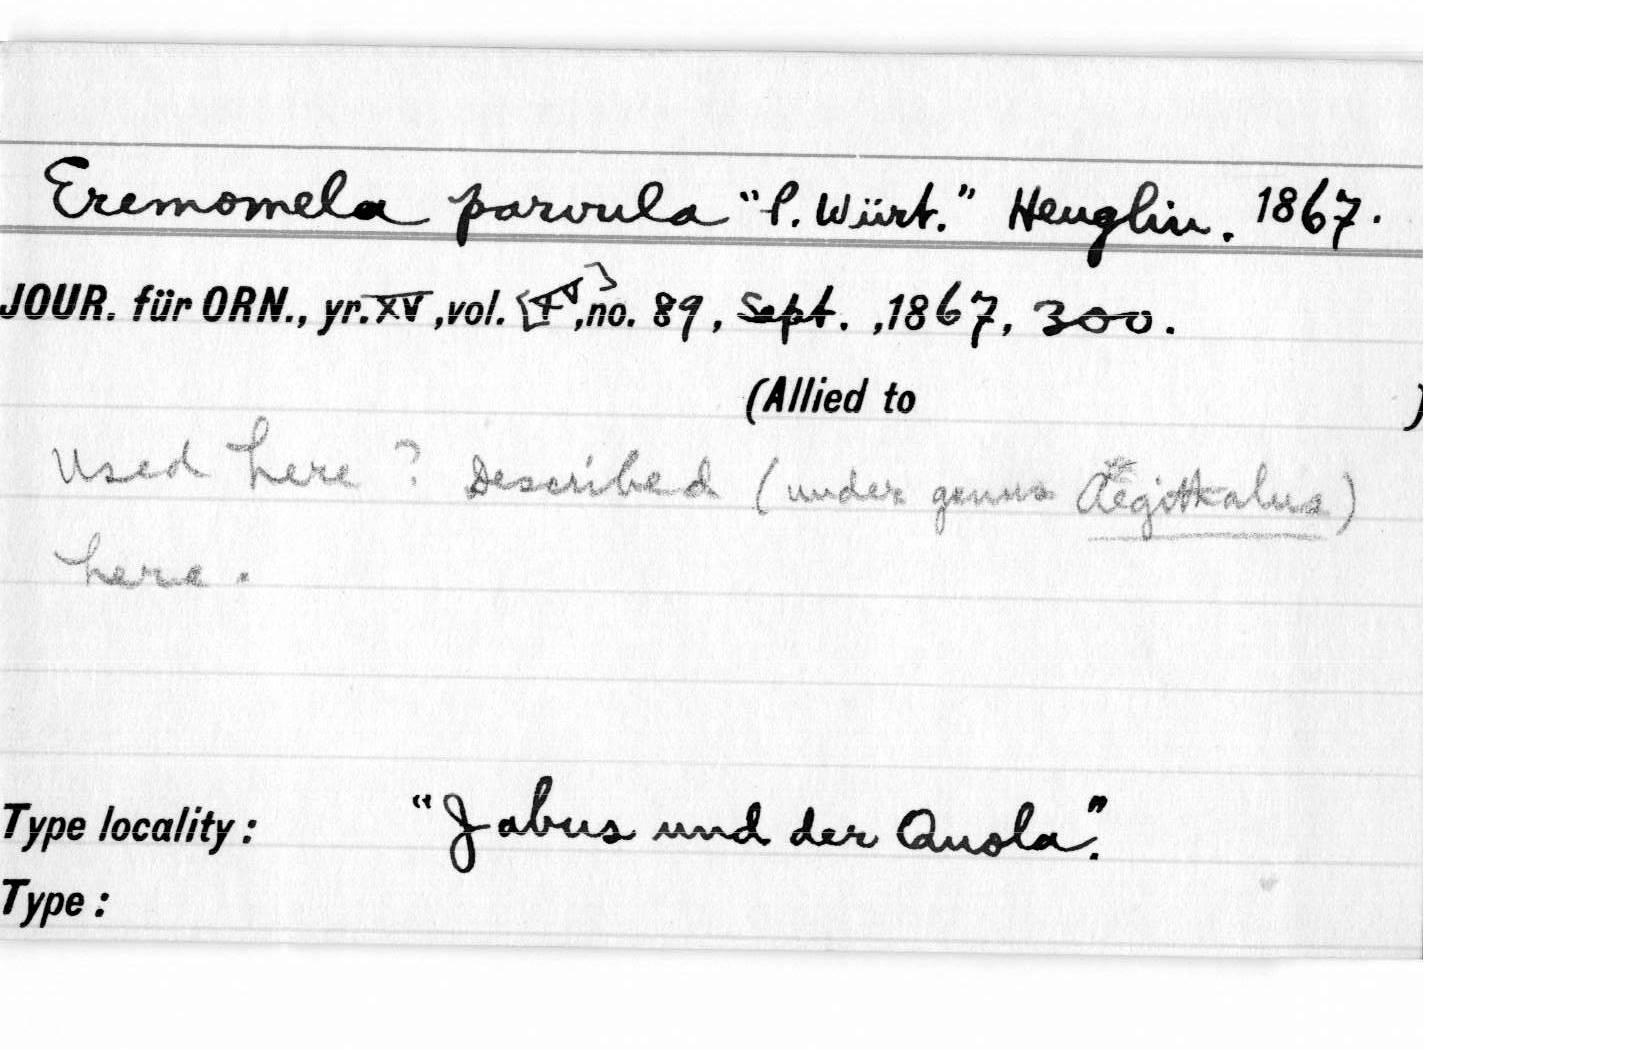 Eremomela parvula "P. Würt." Heuglin. 1867.
JOUR. für ORN., yr. XV, vol. [XV], no. 89, Sept., 1867, 300.
(Allied to )
Used here? Described (under genus Aegithalus)
here.
Type locality: "Jabus und der Quola".
Type: